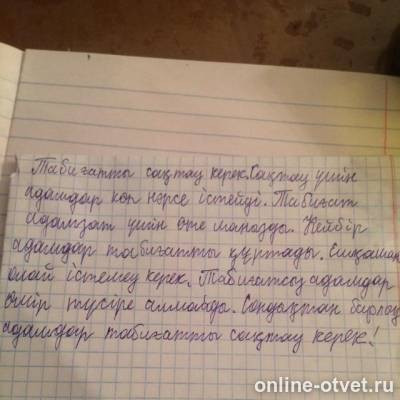 Табиғатты сақтау керек. Сақтау үшін
адамдар көп нәрсе істейді. Табиғат
адамзат үшін өте маңызды. Кейбір
адамдар табиғатты құртады. Ешқашан
олай істемеу керек. Табиғатсыз адамдар
өмір түсіре алмайды. Сондықтан барлық
адамдар табиғатты сақтау керек!
online-otvet.ru